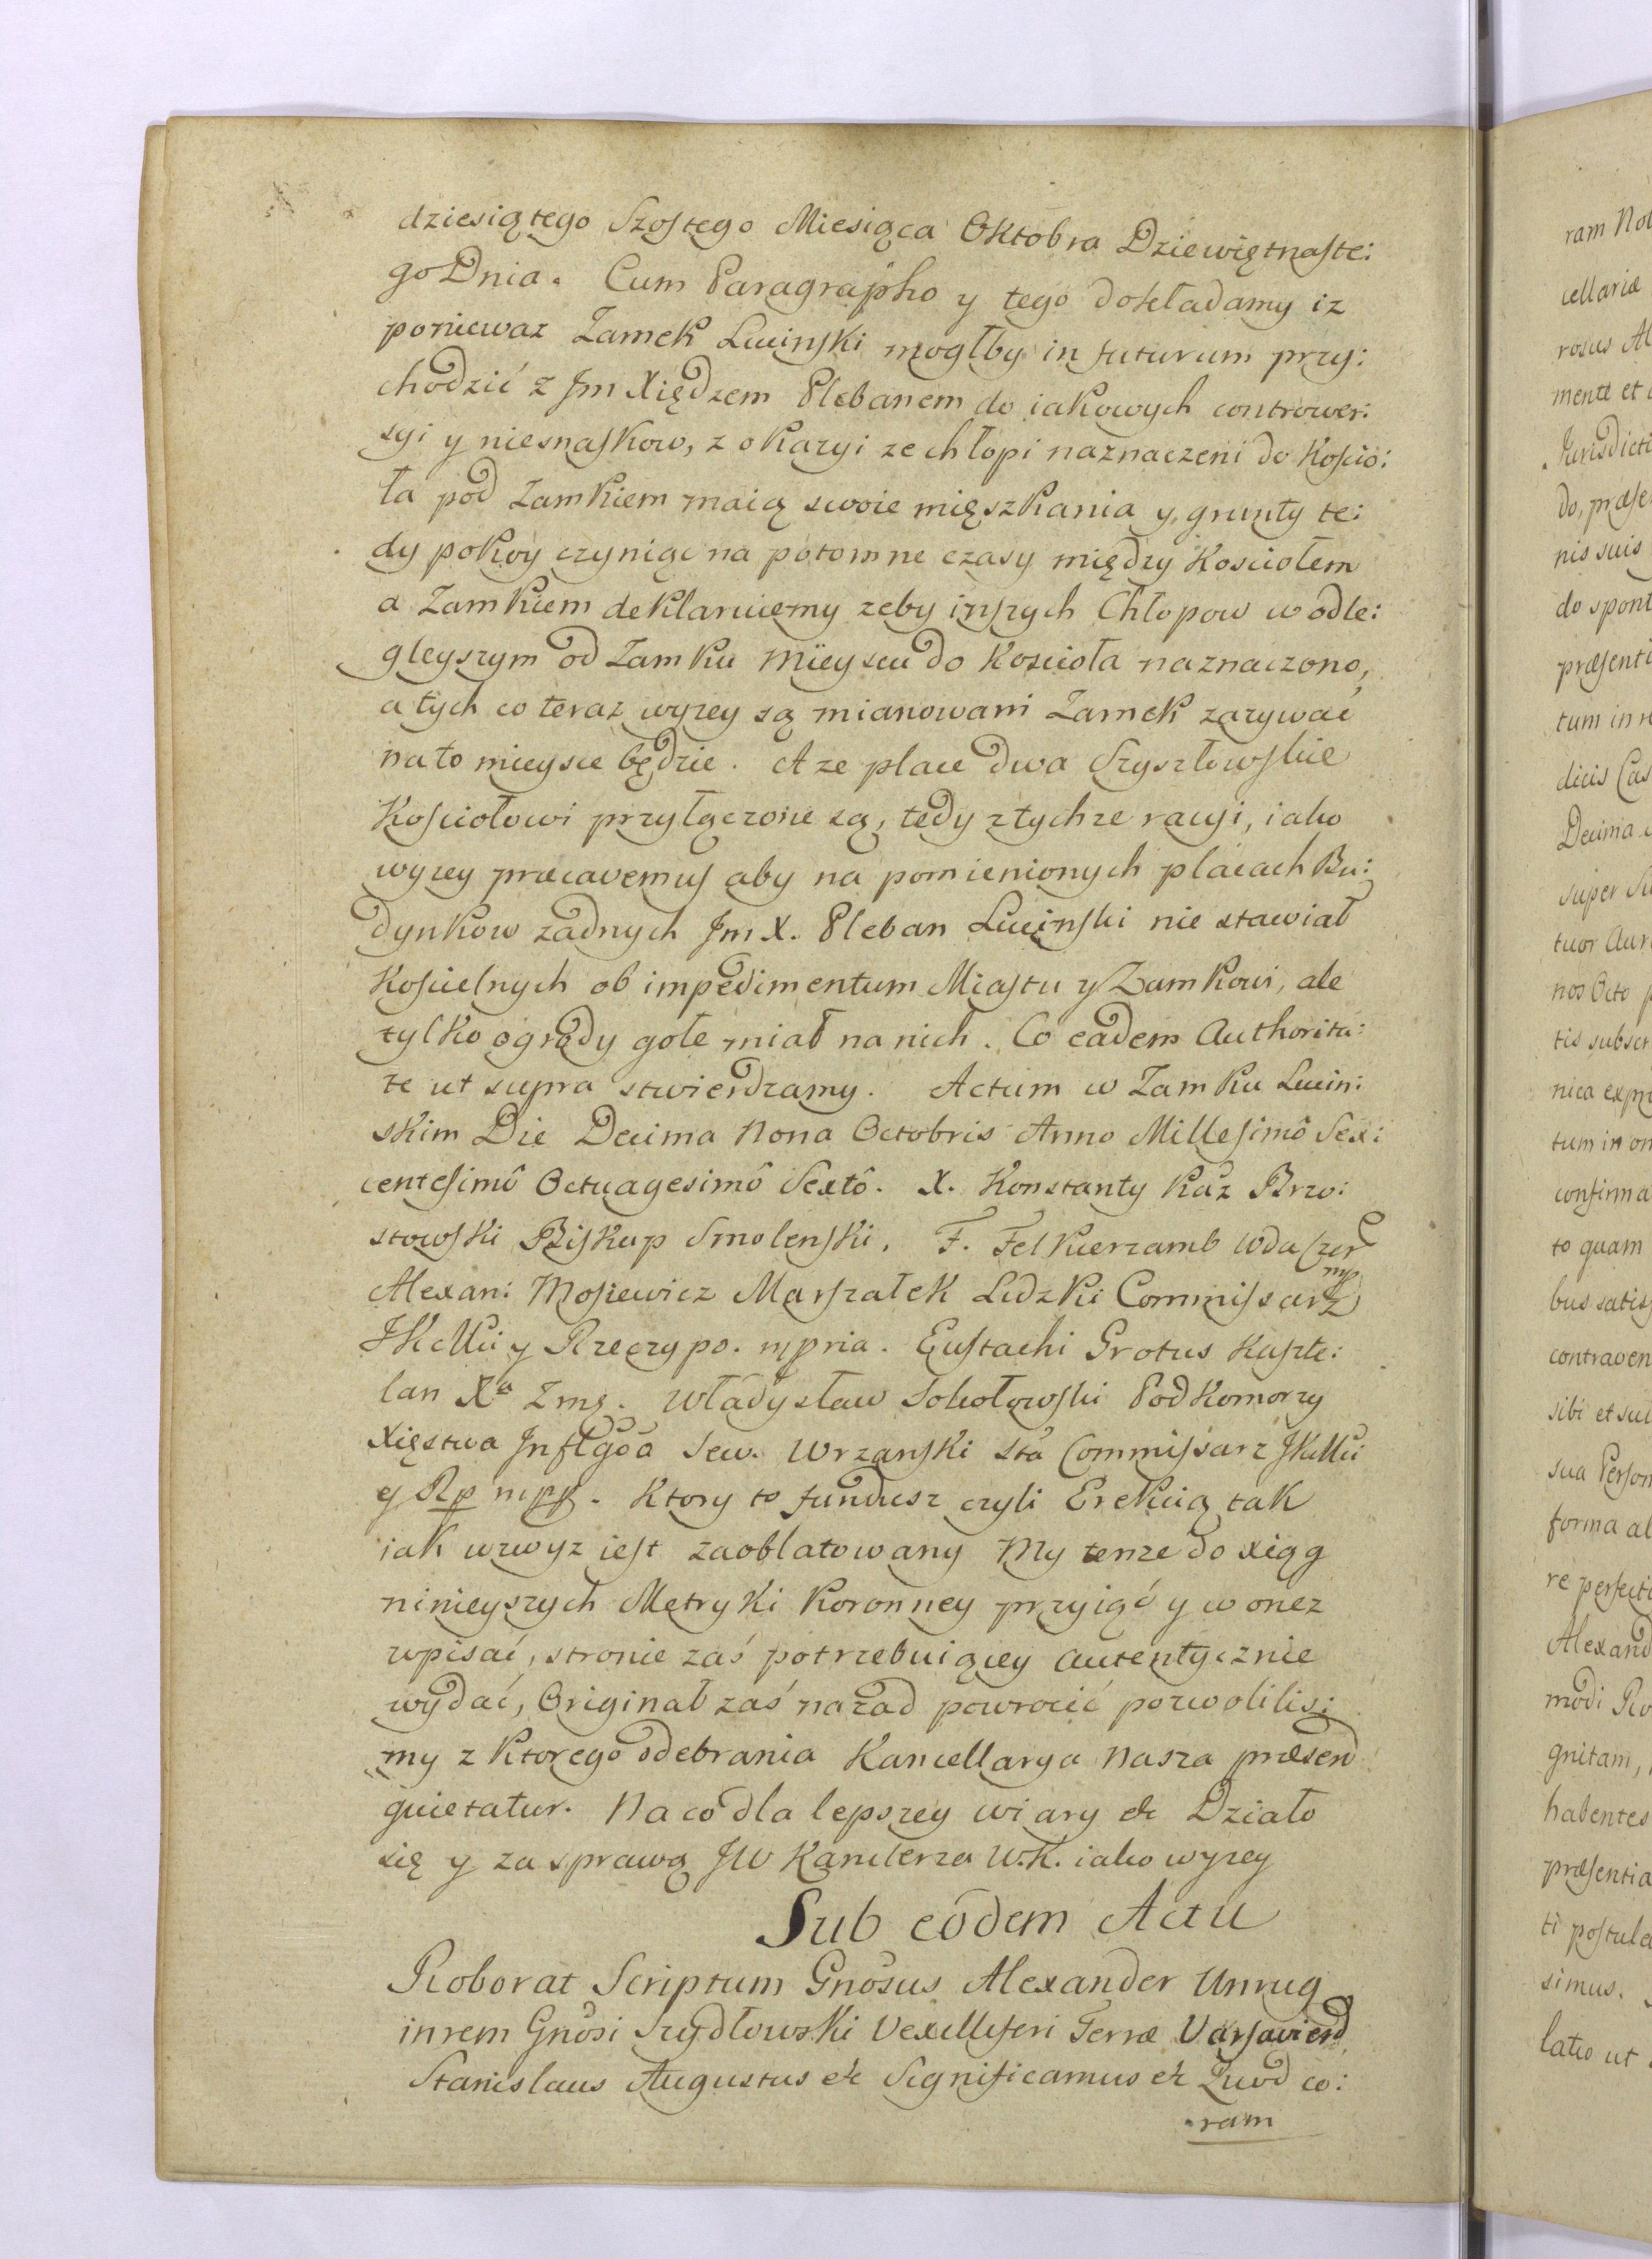 dziesiątego Szostego Miesiąca Oktobra Dziewiętnaste:
go Dnia. Cum Paragrapho y tego dokładamy iz
poniewaz Zamek Lucinski mogłby in futurum przy:
chodzić z Jm Xiędzem Plebanem do iakowych contrower:
syi y niesnaskow, z okazyi ze chłopi naznaczeni do Kościo:
ła pod Zamkiem maią swoie mięszkania y grunty te:
dy pokoy czyniąc na potomne czasy między Kosciołem
a Zamkiem deklaruiemy zeby inszych Chłopow w odle:
gleyszym od Zamku mieyscu do Kościoła naznaczono,
a tych co teraz wyzey są mianowani Zamek zazywać
na to mieysce będzie. A ze place dwa Szyszłowskie
Kościołowi przyłączone są, tedy z tychze racyi, iako
wyzey præcavemus aby na pomienionych placach Bu:
dynkow zadnych Jm X. Pleban Lucinski nie stawiał
Kościelnych ob impedimentum Miastu y Zamkowi, ale
tylko ogrody gołe miał na nich. Co eadem Authorita:
te ut supra stwierdzamy. Actum w Zamku Lucin:
skim Die Decima Nona Octobris Anno Millesimô Sex:
centesimô Octuagesimô Sextô. X. Konstanty Kaz Brzo:
stowski Biskup Smolenski. F. Felkierzamb Wda Czer
Alexan: Mosiewicz Marszałek Lidzki Commissarz mp
JKMci y Rzeczypo. mpria. Eustachi Grotus Kaszte:
lan Xa Zmg. Władysław Sokołowski Podkomorzy
Xięstwa Inflgoa Sew. Wrzanski Sta Commissarz JKMci
y Rp mpp. Ktory to fundusz czyli Erekcią tak
iak wzwyz iest zaoblatowany My tenze do xiąg
ninieyszych Metryki Koronney przyiąć y w onez
wpisać, stronie zaś potrzebuiącey autentycznie
wydać, Originał zaś nazad powrocić pozwolilis:
my z ktorego odebrania Kancellarya Nasza præsen
quietatur. Na co dla lepszey wiary etc Działo
się y za sprawą JW Kanclerza W.K. iako wyzey
Sub eodem Actu
Roborat Scriptum Gnosus Alexander Unrug
in rem Gnosi Szydłowski Vexilliferi Terræ Varsavien
Stanislaus Augustus etc Significamus etc Quod co:
ram
ram Not
cellariæ
rosus Al
mente et
Jurisdicti
do, præse
nis suis
do spont
præsenti
tum in r
dicis Cas
Decima
super Su
tuor Aur
nos Octo p
tis subscr
nica expr
tum in on
confirma
to quam
bus satis
contraven
sibi et sui
sua Person
forma al
re perfect
Alexand
modi Ro
gnitam,
habentes
præsentia
ti postula
simus.
latio ut